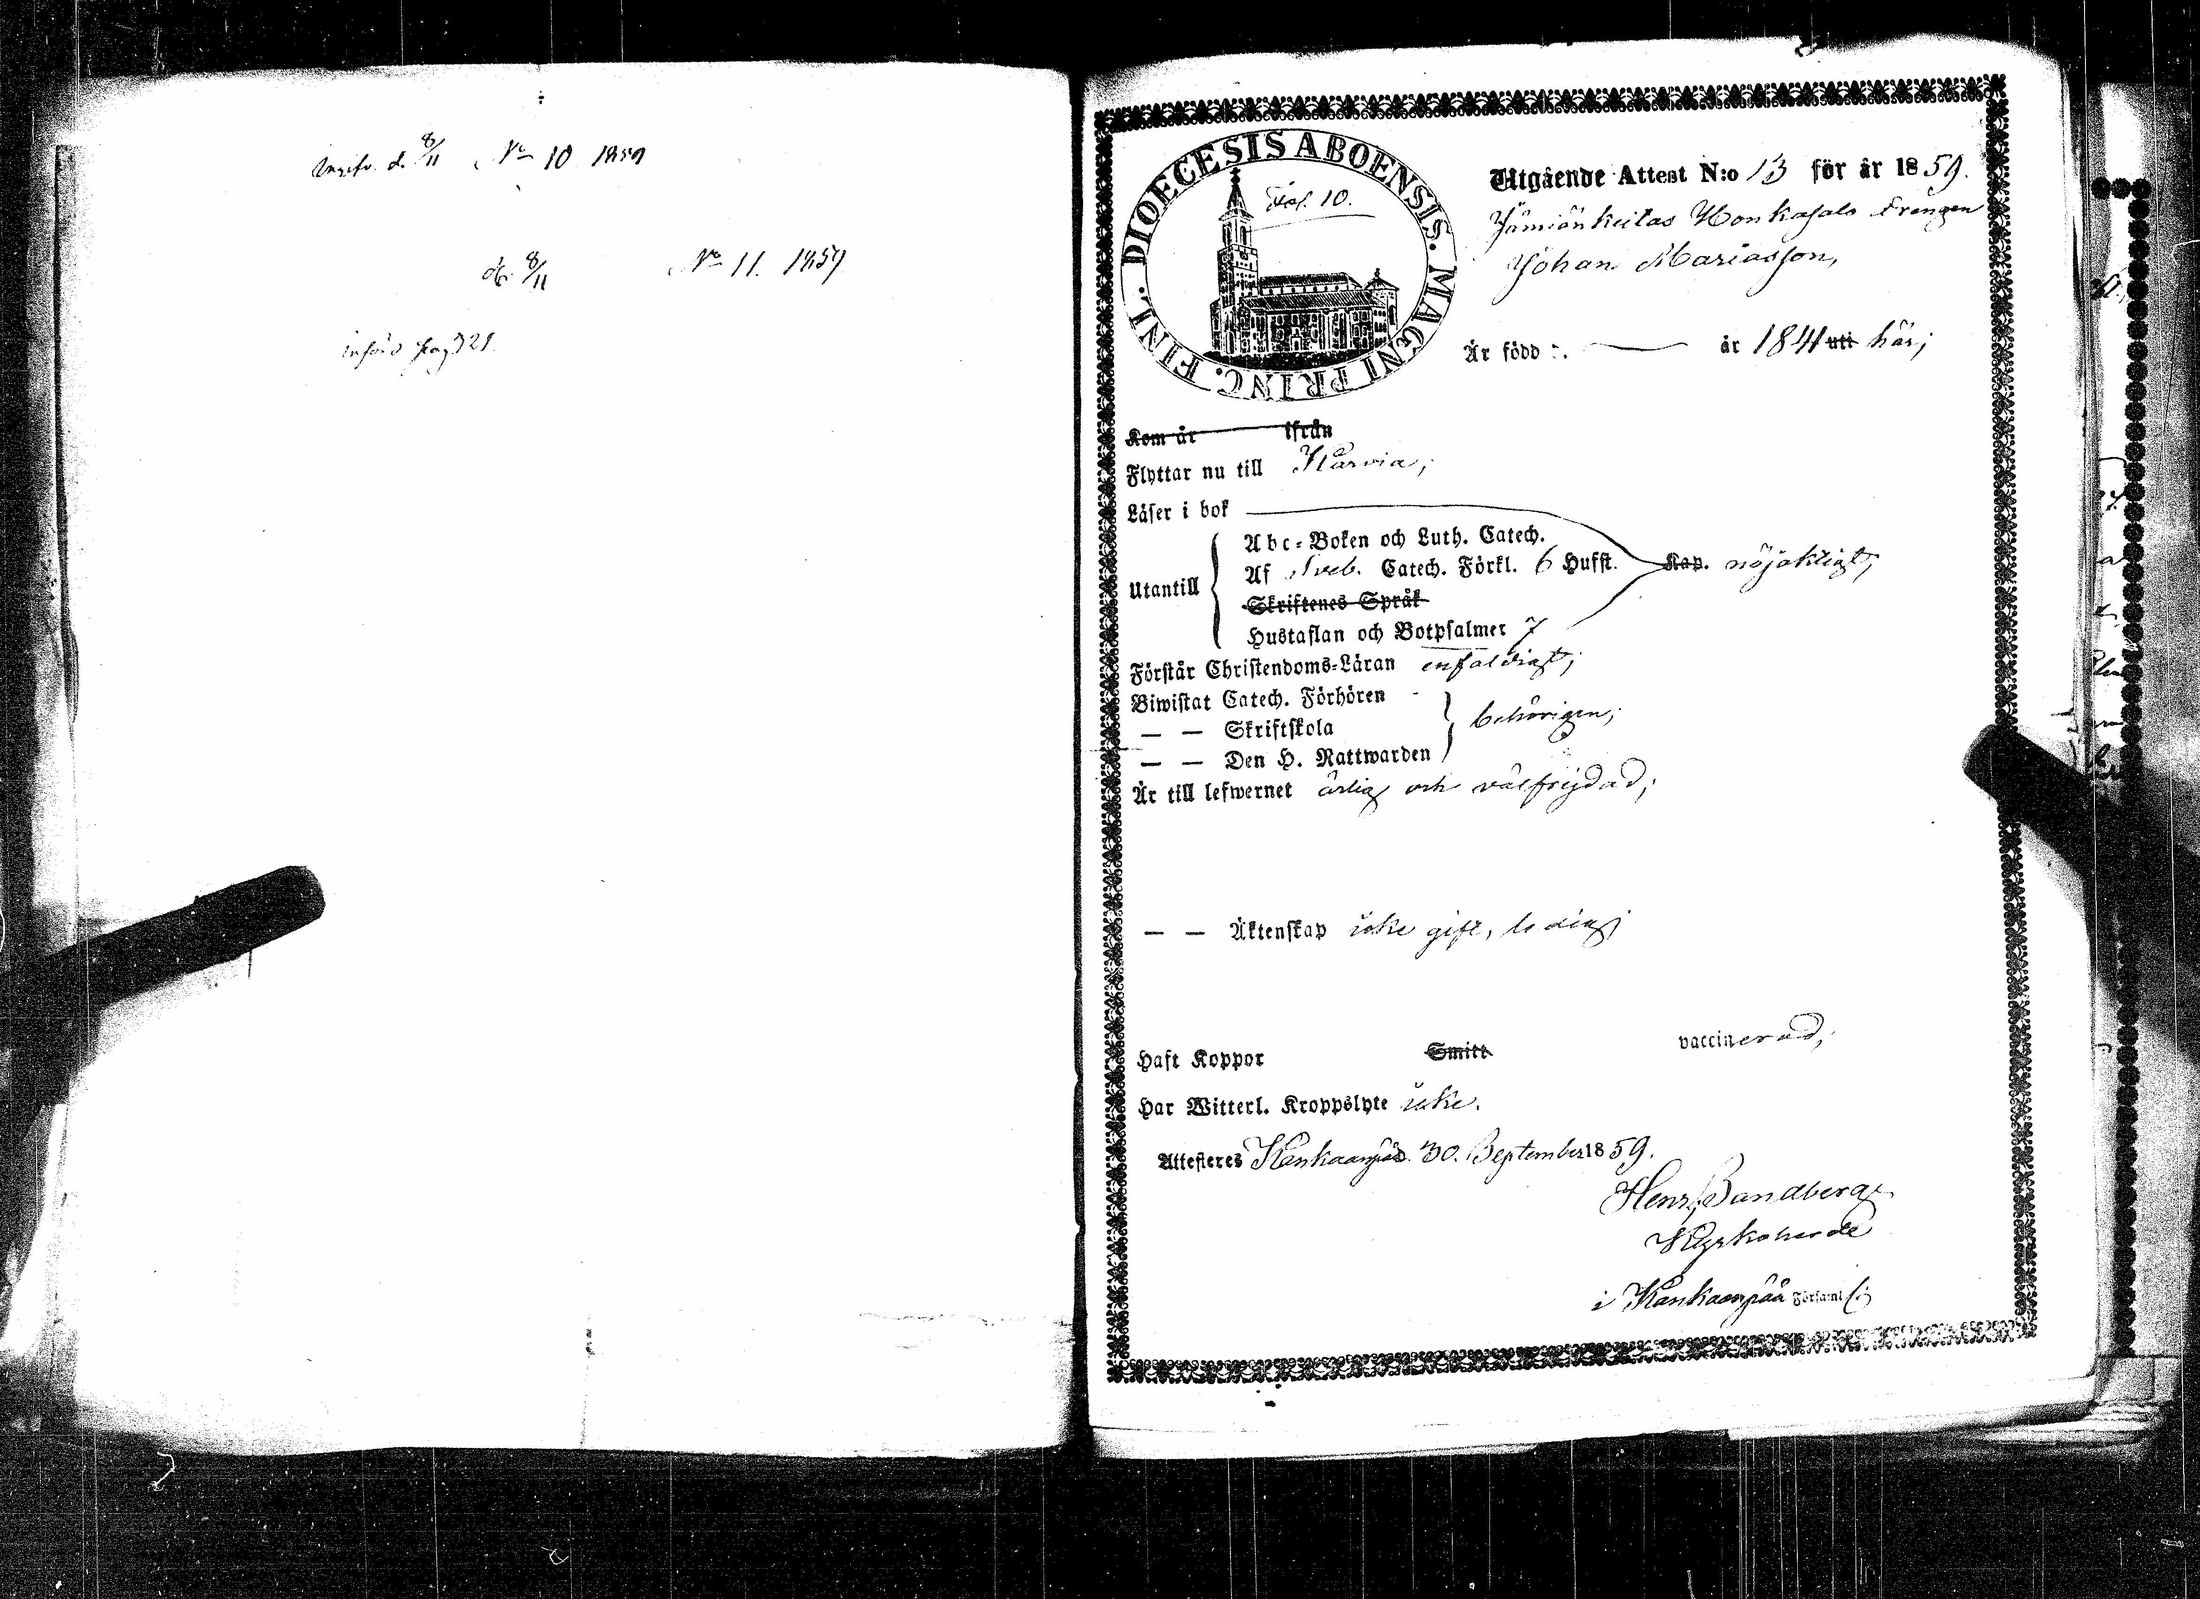 d. 8/11 No 10 1859
do 8/11 No 11. 1859
införd pag 321.
DIOECESIS ABOENSIS. MAGNI PRINC. FINL.
10.
Utgående Attest N:o 13 för år 1859.
Jämiänkeitas Honkasalo Drengen
Johan Mariasson,
Är född d. — år 1841 uti här;
Kom år ifrån
Flyttar nu till Karvia;
Läser i bok
Utantill
Abc-Boken och Luth. Catech.
Af Sveb. Catech. Förkl. 6 Hufst. Kap. nöjaktigt;
Skriftenes Språk
Hustaflan och Botpsalmer 7
Förstår Christendoms-Läran enfaldigt;
Biwistat Catech. Förhören
— — Skriftskola behörigen;
— — Den H. Nattwarden
Är till lefwernet ärlig och välfrejdad;
— — Äktenskap icke gift, ledig;
Haft Koppor Smitt vaccinerad;
Har Witterl. Kroppslyte icke.
Attesteres Kankaanpää 30. September 1859.
Henr. Sandberg
Kyrkoherde
i Kankaanpää Församl.